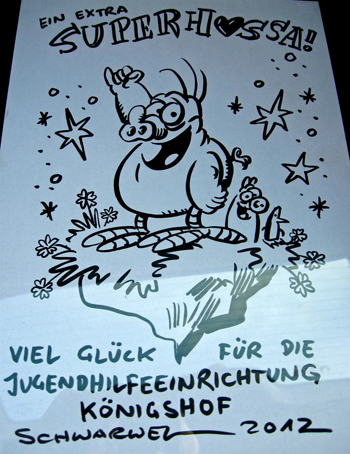 EIN EXTRA
SUPERH♥SSA!
VIEL GLÜCK FÜR DIE
JUGENDHILFEEINRICHTUNG
KÖNIGSHOF
SCHWARWEL 2012